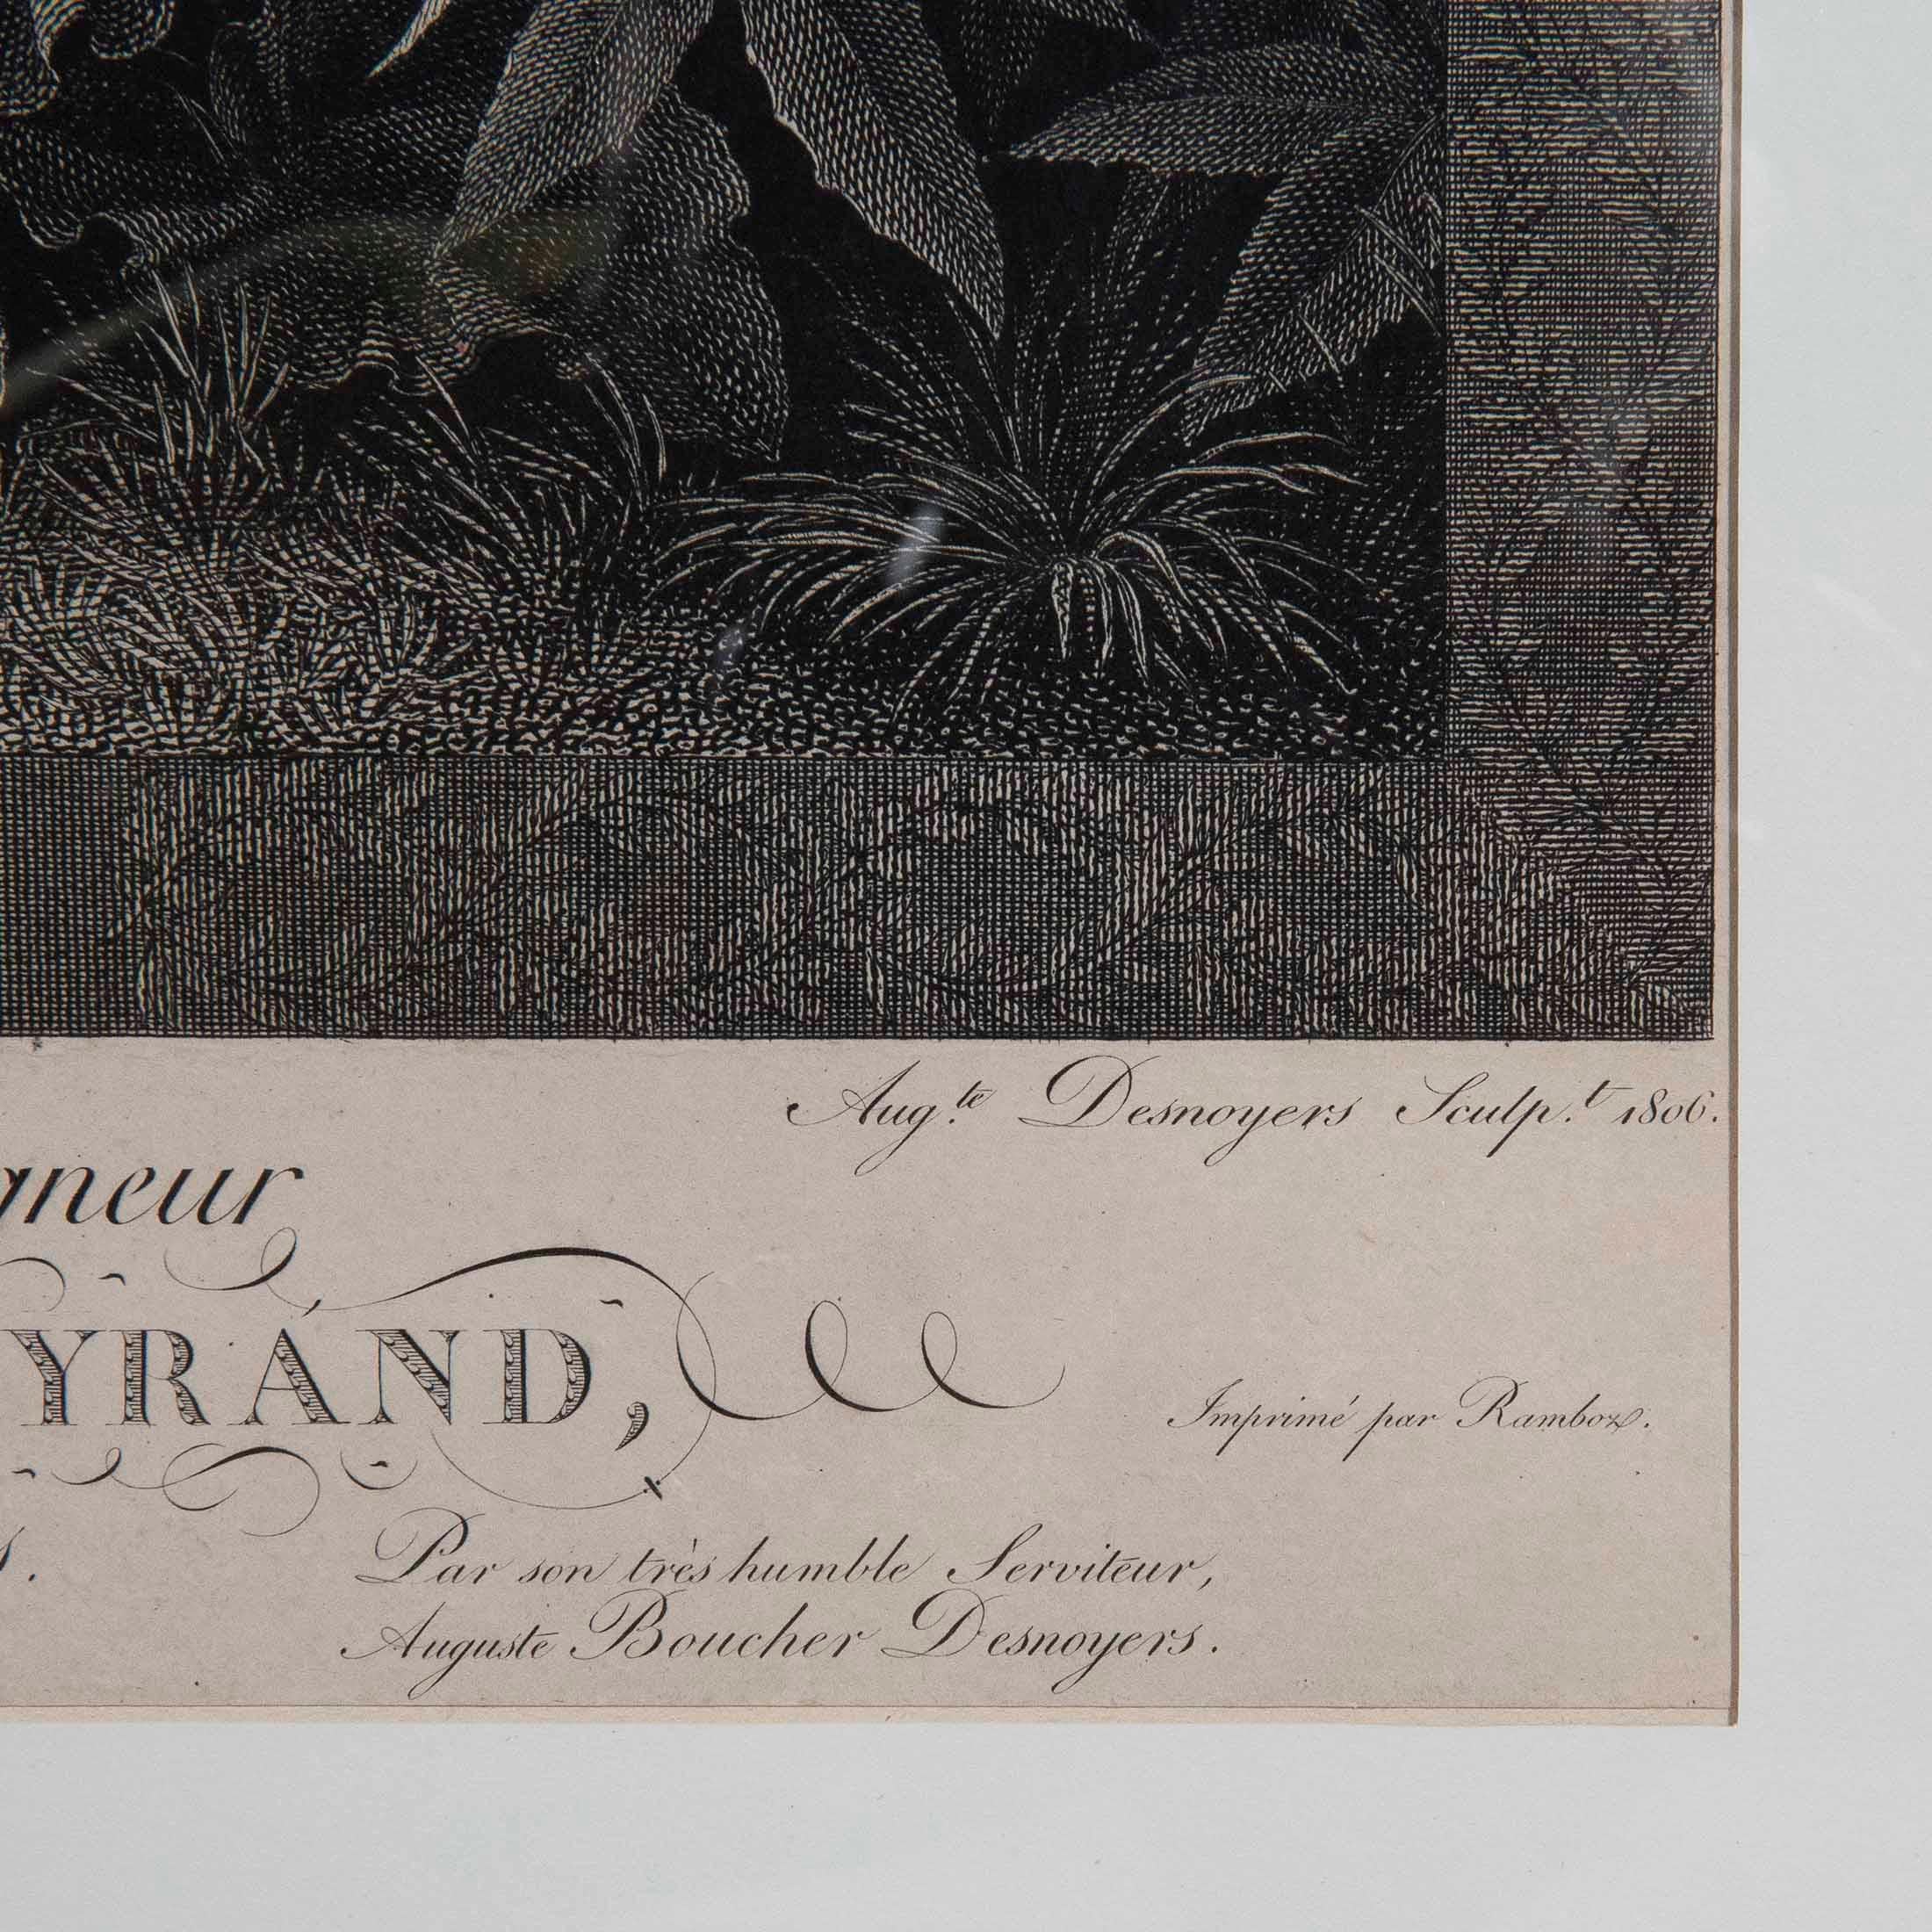 Aug.te Desnoyers Sculp.t 1806.
gneur
YRAND,
Imprimé par Ramboz.
s.
Par son très humble Serviteur,
Auguste Boucher Desnoyers.